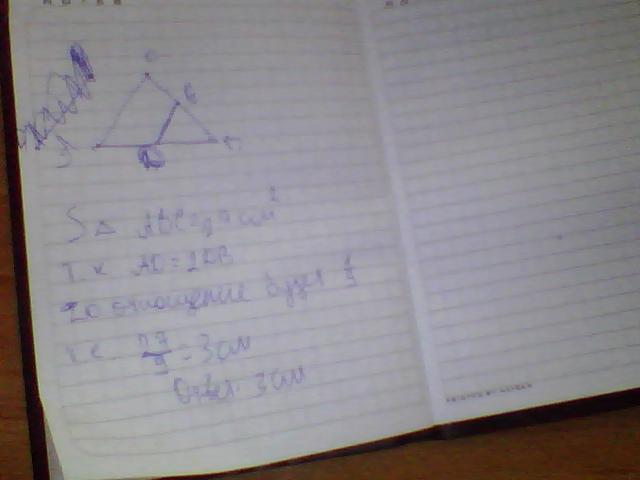 S △ ABC = 27 см²
т.к AD = 2DB
то отношение будет 1/9
т.е. 27/9 = 3 см
Ответ 3 см